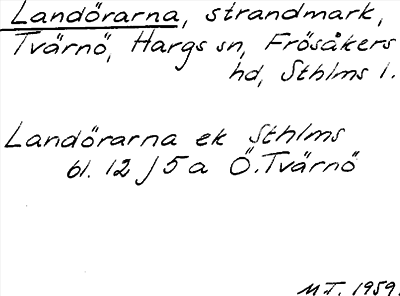 Landörarna, strandmark,
Tvärnö, Hargs sn, Frösåkers
hd, Sthlms l.
Landörarna ek Sthlms
bl. 12 J 5 a Ö. Tvärnö
M T. 1959.